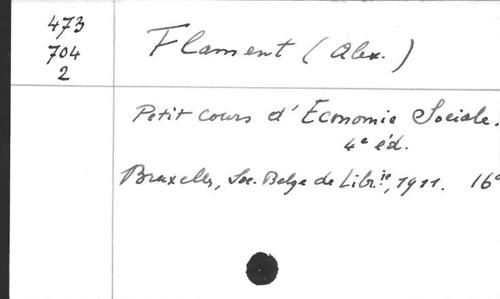 473
704
2
Flament (Alex.)
Petit cours d'Economie Sociale.
4e éd.
Bruxelles, Soc. Belge de Librie, 1911. 16°